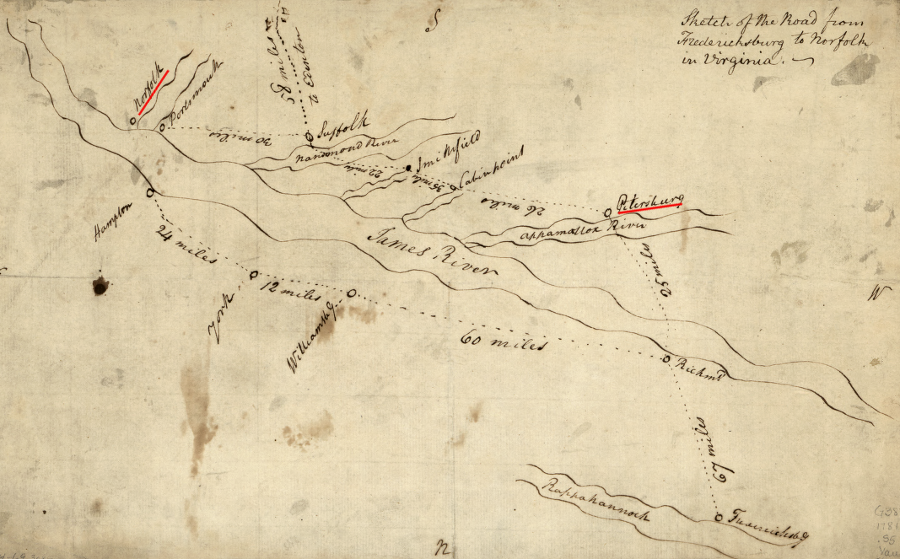 S
Sketch of the Road from
Fredericksburg to Norfolk
in Virginia.
58 miles
to Edenton
Norfolk
Portsmouth
20 miles
Suffolk
Nansemond River
22 miles
Smithfield
Cabinpoint
26 miles
Petersburg
Appamattox River
25 miles
Hampton
24 miles
York
12 miles
Williamsbg.
James River
60 miles
Richmd
W
67 miles
Rappahannock
N